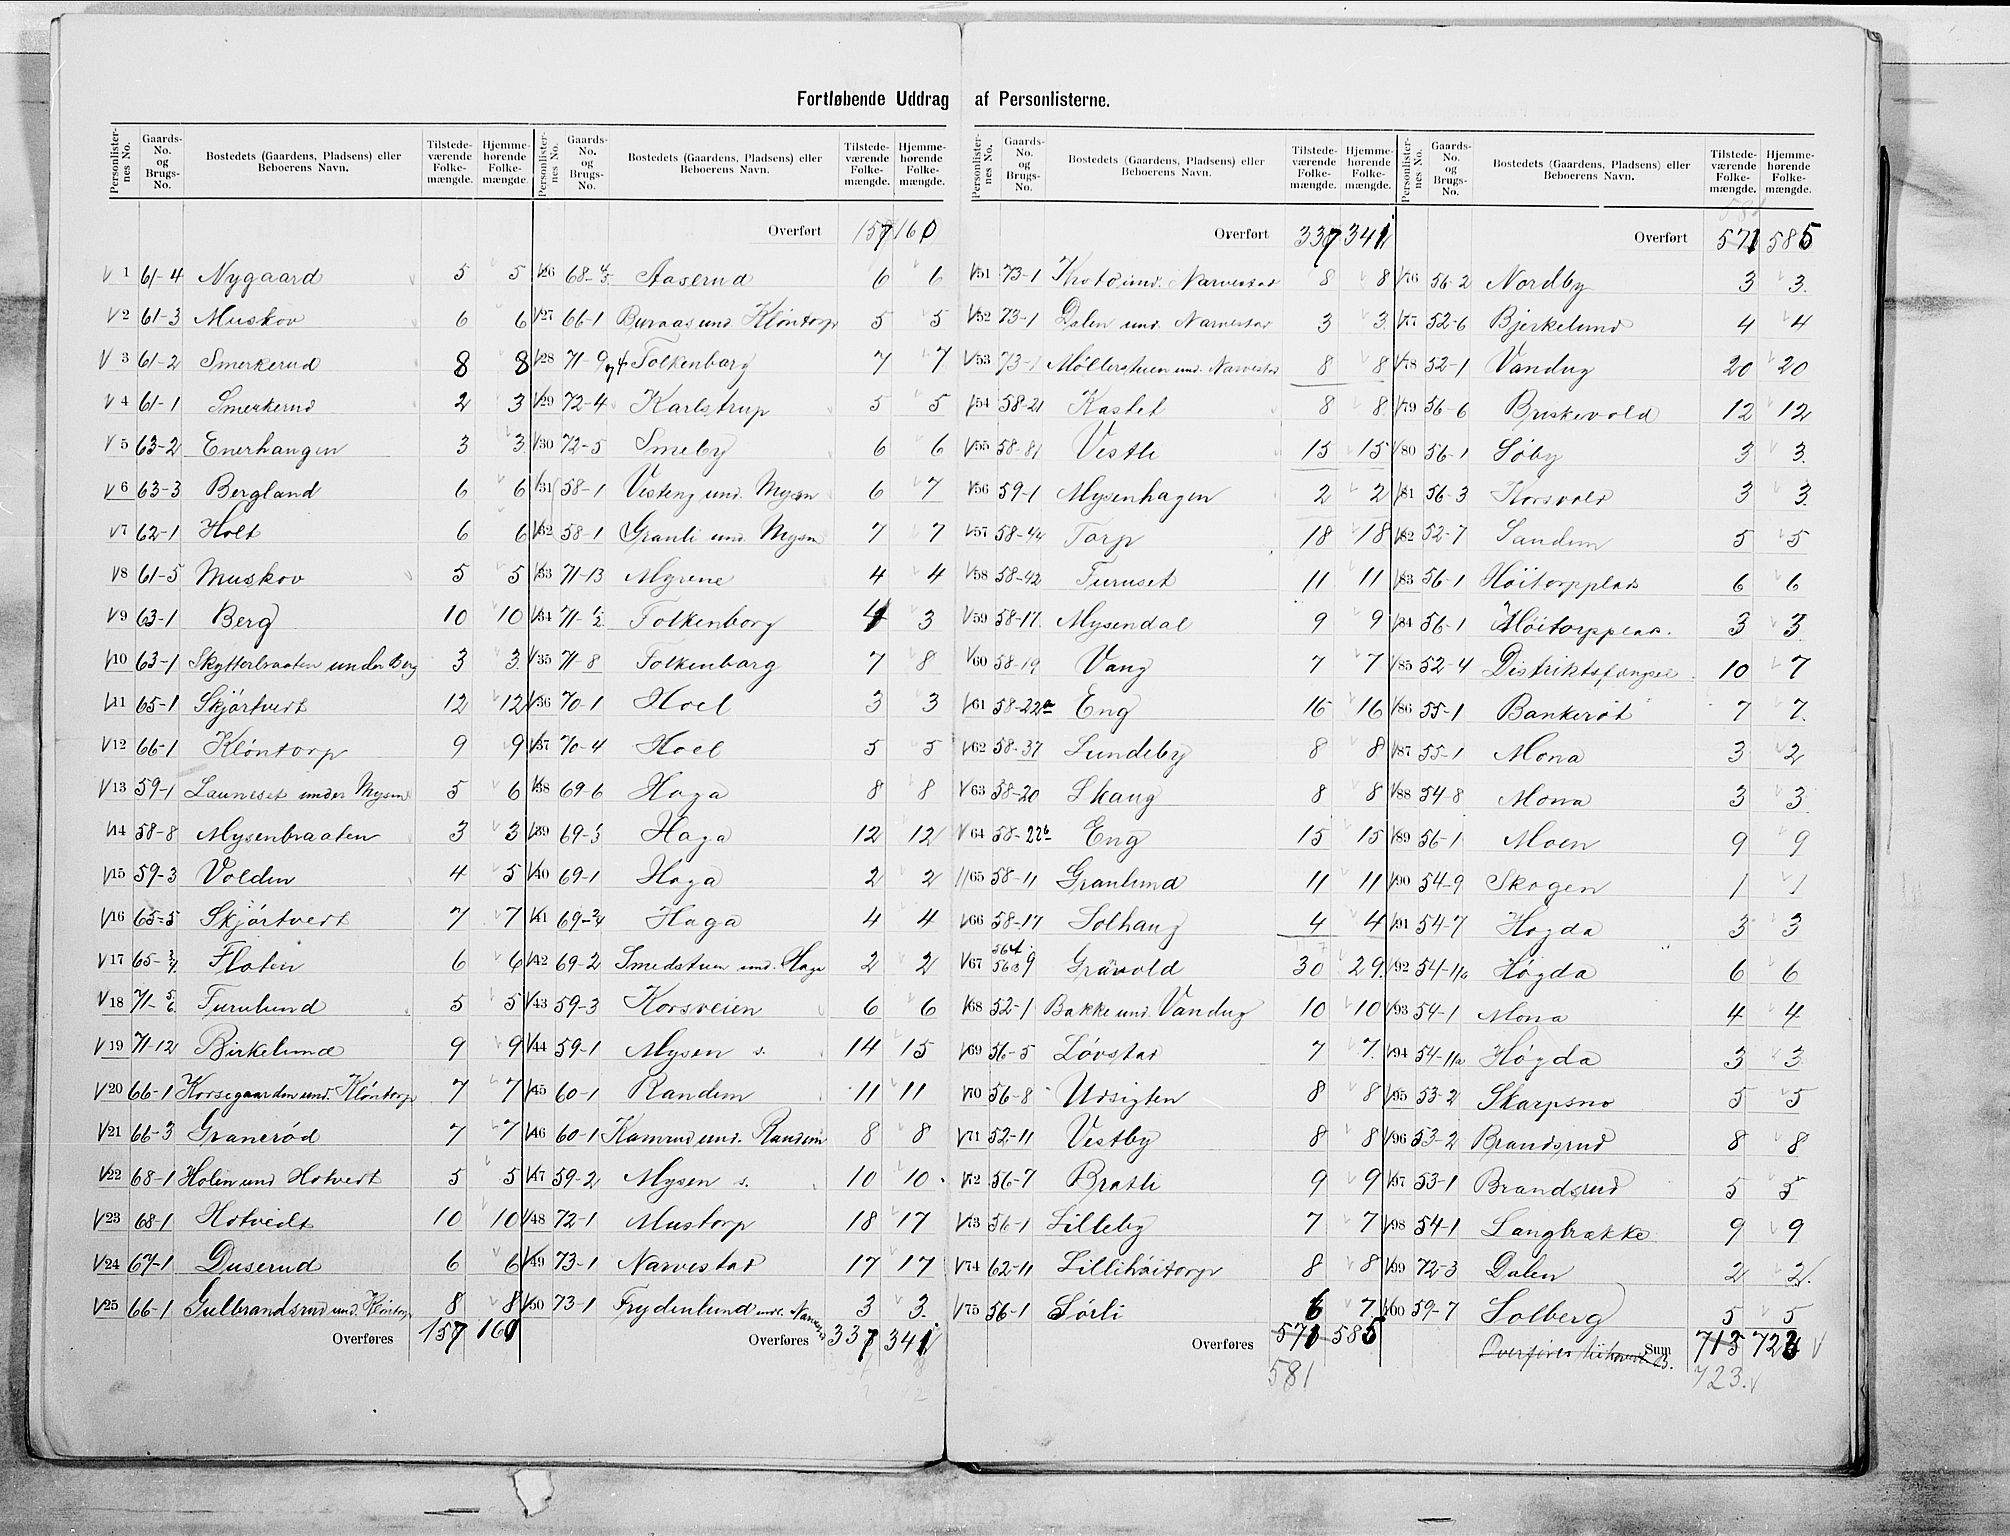 Fortløbende Uddrag af Personlisterne.
Personlisternes No. Gaards-No. og Brugs-No. Bostedets (Gaardens, Pladsens) eller Beboerens Navn. Tilstedeværende Folkemængde. Hjemmehørende Folkemængde.
1 61-4 Nygaard 5 5
2 61-3 Muskov 6 6
3 61-2 Smerkerud 8 8
4 61-1 Smerkerud 2 3
5 63-2 Enerhaugen 3 3
6 63-3 Bergland 6 6
7 62-1 Holt 6 6
8 61-5 Muskov 5 5
9 63-1 Berg 10 10
10 63-1 Skytterbraaten under Berg 3 3
11 65-1 Skjørtvedt 12 12
12 66-1 Kløntorp 9 9
13 59-1 Launeset under Mysen 5 6
14 58-8 Mysenbraaten 3 3
15 59-3 Volden 4 5
16 65-5 Skjørtvedt 7 7
17 65-3/4 Floten 6 6
18 71-5/6 Furulund 5 5
19 71-12 Birkelund 9 9
20 66-1 Korsegaarden und. Kløntorp 7 7
21 66-3 Granerød 7 7
22 68-1 Holen und Hotvedt 5 5
23 68-1 Hotvedt 10 10
24 67-1 Duserud 6 6
25 66-1 Gulbrandsrud und. Kløntorp 8 8
Overføres 157 160
Personlisternes No. Gaards-No. og Brugs-No. Bostedets (Gaardens, Pladsens) eller Beboerens Navn. Tilstedeværende Folkemængde. Hjemmehørende Folkemængde.
Overført 157 160
26 68- Aaserud 6 6
27 66-1 Buraas und. Kløntorp 5 5
28 71-9 Folkenborg 7 7
29 72-4 Karlstrup 5 5
30 72-5 Smeby 6 6
31 58-1 Visteng und. Mysen 6 7
32 58-1 Granli und. Mysen 7 7
33 71-13 Myrene 4 4
34 71-1/2 Folkenborg 4 3
35 71-8 Folkenborg 7 8
36 70-1 Hoel 3 3
37 70-4 Hoel 5 5
38 69-6 Haga 8 8
39 69-5 Haga 12 12
40 69-1 Haga 2 2
41 69-3/4 Haga 4 4
42 69-2 Smedstuen und. Haga 2 2
43 59-3 Korsveien 6 6
44 59-1 Mysen s. 14 15
45 60-1 Randem 11 11
46 60-1 Kamrud und. Randem 8 8
47 59-2 Mysen s. 10 10
48 72-1 Mustorp 18 17
49 73-1 Narvestad 17 17
50 73-1 Frydenlund und. Narvestad 3 3
Overføres 337 341
Personlisternes No. Gaards-No. og Brugs-No. Bostedets (Gaardens, Pladsens) eller Beboerens Navn. Tilstedeværende Folkemængde. Hjemmehørende Folkemængde.
Overført 337 341
51 73-1 und. Narvestad 8 8
52 73-1 Dalen und. Narvestad 3 3
53 73-1 Møllerstuen und. Narvestad 8 8
54 58-21 Kastet 8 8
55 58-81 Vestli 15 15
56 59-1 Mysenhagen 2 2
57 58-44 Torp 18 18
58 58-42 Furuset 11 11
59 58-17 Mysendal 9 9
60 58-19 Vang 7 7
61 58-22a Eng 16 16
62 58-37 Lundeby 8 8
63 58-20 Skaug 8 8
64 58-22b Eng 15 15
65 58-11 Granlund 11 11
66 58-17 Solhaug 4 4
67 Gravold 30 29
68 52-1 Bakke und. Vandug 10 10
69 56-5 Løvstad 7 7
70 56-8 Udsigten 8 8
71 52-11 Vestby 8 8
72 56-7 Bratli 9 9
73 56-1 Lilleby 7 7
74 62-11 Lillihøitorp 8 8
75 56-1 Sørli 6 7
Overføres 571 585
581
Personlisternes No. Gaards-No. og Brugs-No. Bostedets (Gaardens, Pladsens) eller Beboerens Navn. Tilstedeværende Folkemængde. Hjemmehørende Folkemængde.
581
Overført 571 585
76 56-2 Nordby 3 3
77 52-6 Bjerkelund 4 4
78 52-1 Vandug 20 20
79 56-6 Buskevold 12 12
80 56-1 Søby 3 3
81 56-3 Korsvold 3 3
82 52-7 Sandem 5 5
83 56-1 Høitorpplads 6 6
84 56-1 Høitorpplads. 3 3
85 52-4 Distriktsfængsel 10 7
86 55-1 Bankerøt 7 7
87 55-1 Mona 3 2
88 54-8 Mona 3 3
89 56-1 Moen 9 9
90 54-9 Skogen 1 1
91 54-7 Høgda 3 3
92 54-11b Høgda 6 6
93 54-1 Mona 4 4
94 54-11a Høgda 3 3
95 53-2 Skarpsno 5 5
96 53-2 Brandsrud 8 8
97 53-1 Brandsrud 5 5
98 54-1 Langbrække 9 9
99 72-3 Dalen 2 2
100 59-7 Solberg 5 5
Overføres Sum 715 723
723